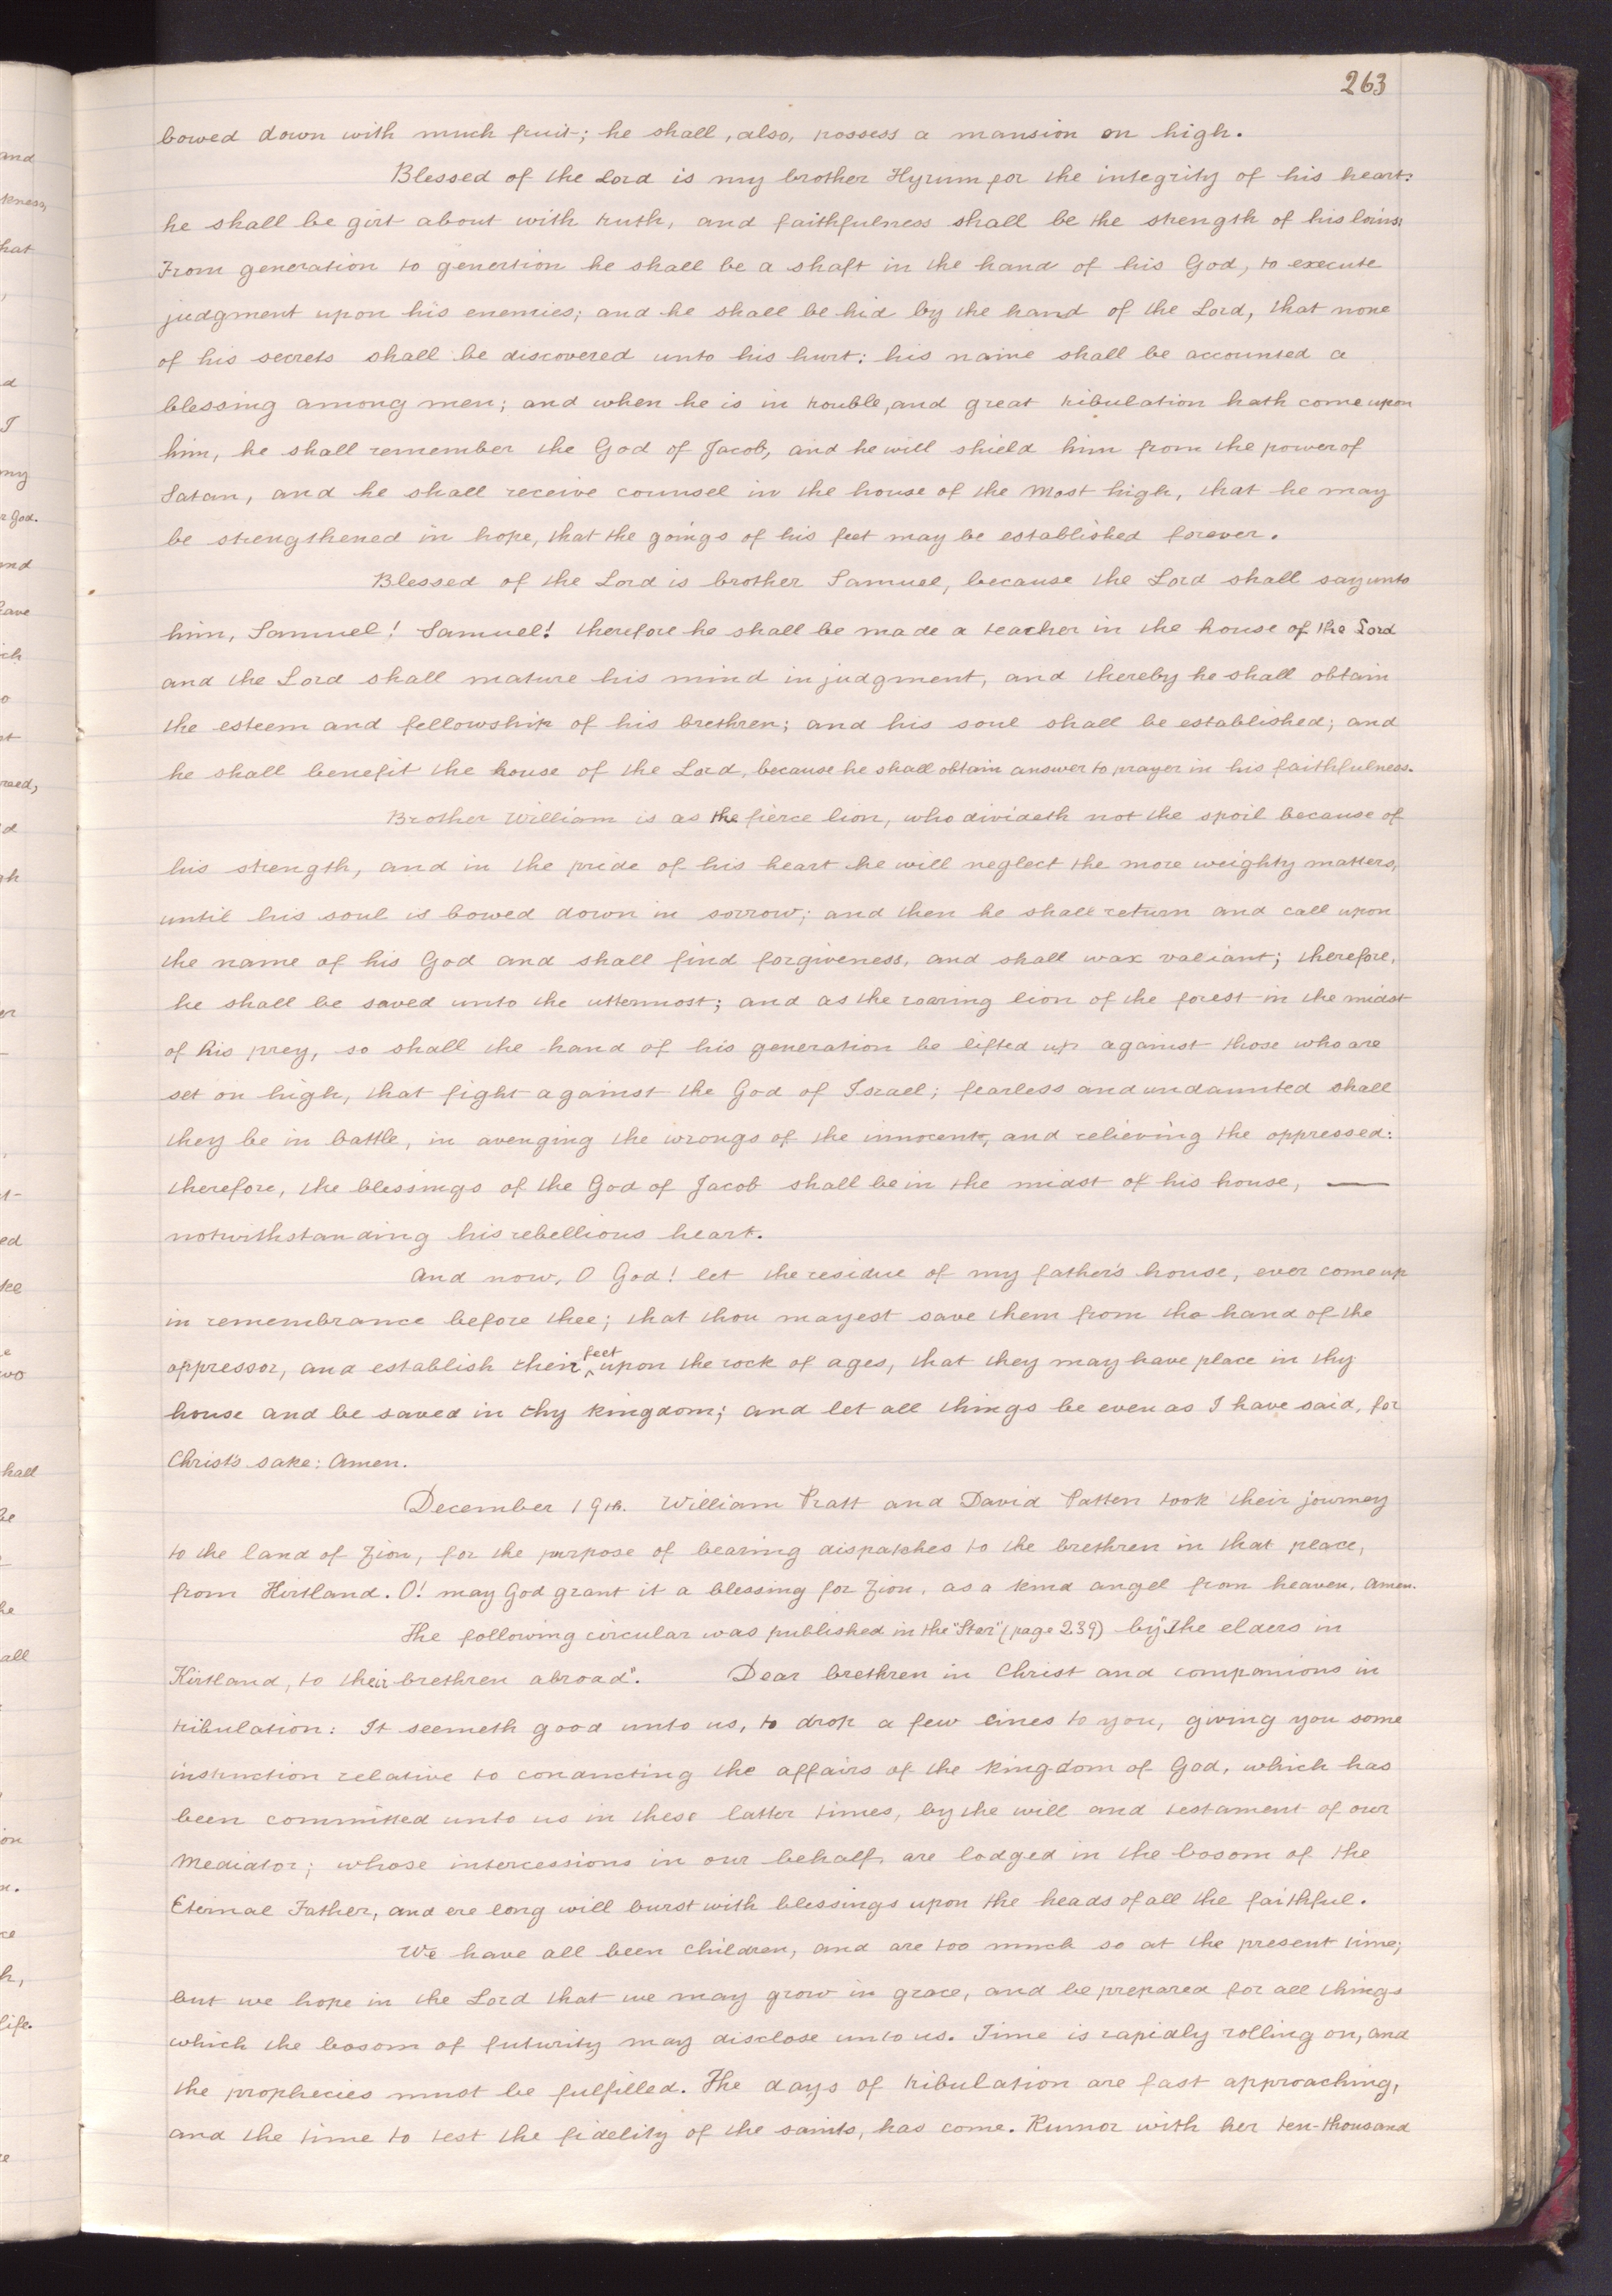 263
bowed down with much fruit; he shall, also, possess a mansion on high.
Blessed of the Lord is my brother Hyrum for the integrity of his heart:
he shall be girt about with truth, and faithfulness shall be the strength of his loins:
From generation to genertion he shall be a shaft in the hand of his God, to execute
judgment upon his enemies; and he shall be hid by the hand of the Lord, that none
of his secrets shall be discovered unto his hurt: his name shall be accounted a
blessing among men; and when he is in trouble, and great tribulation hath come upon
him, he shall remember the God of Jacob, and he will shield him from the power of
Satan, and he shall receive counsel in the house of the Most high, that he may
be strengthened in hope, that the goings of his feet may be established forever.
Blessed of the Lord is brother Samuel, because the Lord shall say unto
him, Samuel! Samuel! therefore he shall be made a teacher in the house of the Lord
and the Lord shall mature his mind in judgment, and thereby he shall obtain
the esteem and fellowship of his brethren; and his soul shall be established; and
he shall benefit the house of the Lord, because he shall obtain answer to prayer in his faithfulness.
Brother William is as the fierce lion, who divideth not the spoil because of
his strength, and in the pride of his heart he will neglect the more weighty matters,
until his soul is bowed down in sorrow; and then he shall return and call upon
the name of his God and shall find forgiveness, and shall wax valiant; therefore,
he shall be saved unto the uttermost; and as the roaring lion of the forest in the midst
of his prey, so shall the hand of his generation be lifted up against those who are
set on high, that fight against the God of Israel; fearless and undaunted shall
they be in battle, in avenging the wrongs of the innocent, and relieving the oppressed:
therefore, the blessings of the God of Jacob shall be in the midst of his house, —
notwithstanding his rebellious heart.
And now, O God! let the residue of my father's house, ever come up
in remembrance before thee; that thou mayest save them from the hand of the
oppressor, and establish their feet upon the rock of ages, that they may have place in thy
house and be saved in thy kingdom; and let all things be even as I have said, for
Christ's sake: Amen.
December 19th. William Pratt and David Patten took their journey
to the land of Zion, for the purpose of bearing dispatches to the brethren in that place,
from Kirtland. O! may God grant it a blessing for Zion, as a kind angel from heaven, Amen.
The following circular was published in the "Star" (page 239) by "The elders in
Kirtland, to their brethren abroad". Dear brethren in Christ and companions in
tribulation: It seemeth good unto us, to drop a few lines to you, giving you some
instruction relative to conducting the affairs of the kingdom of God, which has
been committed unto us in these latter times, by the will and testament of our
Mediator; whose intercessions in our behalf, are lodged in the bosom of the
Eternal Father, and ere long will burst with blessings upon the heads of all the faithful.
We have all been children, and are too much so at the present time;
but we hope in the Lord that we may grow in grace, and be prepared for all things
which the bosom of futurity may disclose unto us. Time is rapidly rolling on, and
the prophecies must be fulfilled. The days of tribulation are fast approaching,
and the time to test the fidelity of the saints, has come. Rumor with her ten-thousand